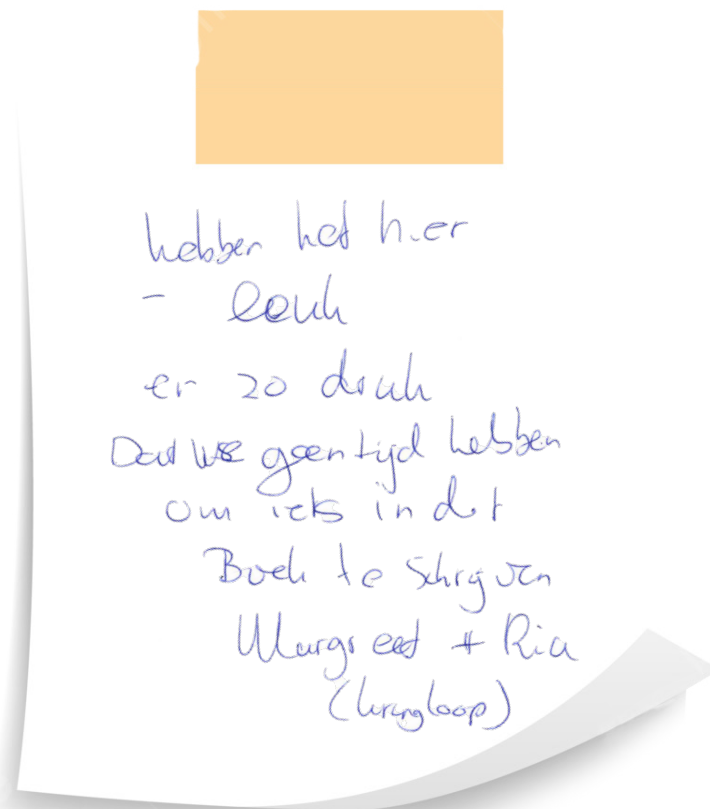 hebben het hier
- leuk
er zo druk
Dat we geen tijd hebben
om iets in dit
Boek te schrijven
Margreet + Ria
(kringloop)